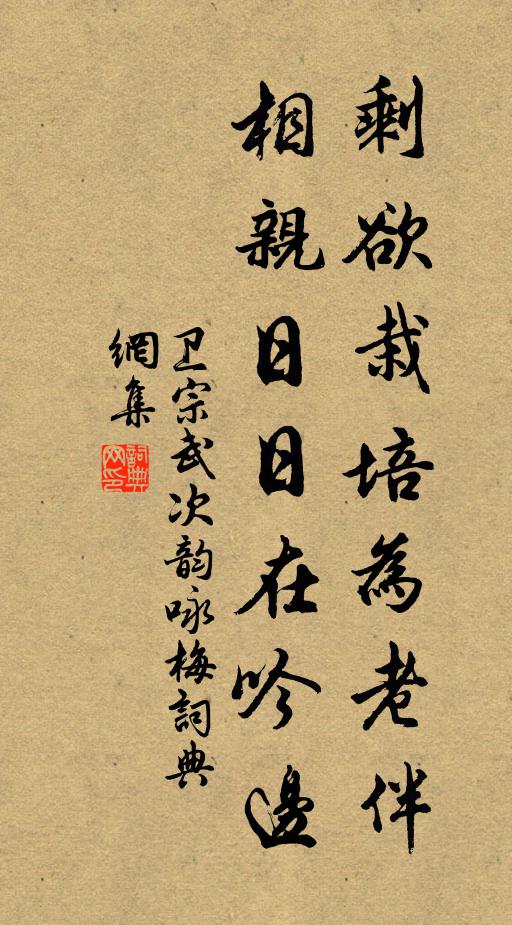 剩欲栽培為老伴
相親日日在吟邊
卫宗武次韵咏梅詞典
網集
詞典网印